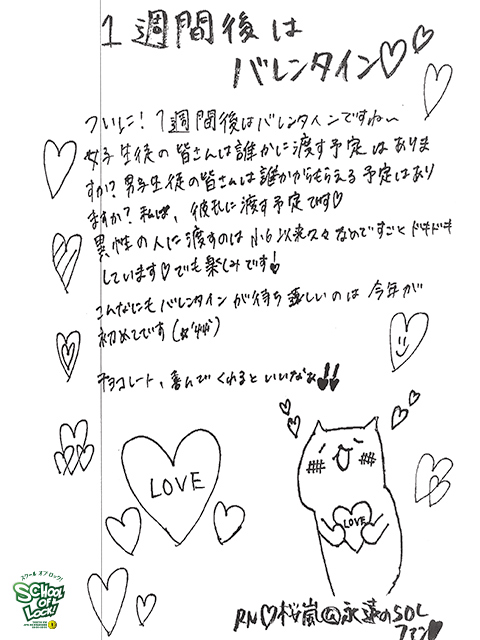 1週間後は
バレンタイン♡♡
ついに！1週間後はバレンタインですね〜
女子生徒の皆さんは誰かに渡す予定はありま
すか？男子生徒の皆さんは誰かからもらえる予定はあり
ますか？私は、彼氏に渡す予定です♡
異性の人に渡すのは小6以来久々なのですごくドキドキ
しています♡でも楽しみです！
こんなにもバレンタインが待ち遠しいのは今年が
初めてです
チョコレート、喜んでくれるといいなぁ!!
LOVE
LOVE
スクール オブ ロック!
SCHOOL
OF
LOCK!
RN♡桜嵐@永遠のSOL